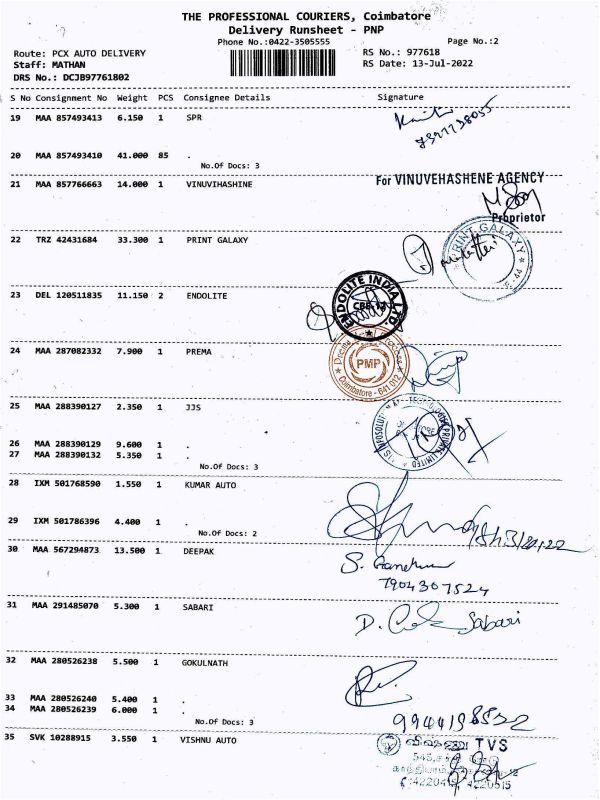 THE PROFESSIONAL COURIERS, Coimbatore
Delivery Runsheet - PNP
Phone No.:0422-3505555
Page No.:2
Route: PCX AUTO DELIVERY
RS No.: 977618
Staff: MATHAN
RS Date: 13-Jul-2022
DRS No.: DCJB97761802
S No Consignment No Weight PCS Consignee Details Signature
19 MAA 857493413 6.150 1 SPR
20 MAA 857493410 41.000 85 .
No.Of Docs: 3
21 MAA 857766663 14.000 1 VINUVIHASHINE
For VINUVEHASHENE AGENCY
Proprietor
22 TRZ 42431684 33.300 1 PRINT GALAXY
PRINT GALAXY
23 DEL 120511835 11.150 2 ENDOLITE
ENDOLITE INDIA LTD.
24 MAA 287082332 7.900 1 PREMA
PMP
Coimbatore - 641 012
25 MAA 288390127 2.350 1 JJS
PRIVATE LIMITED
26 MAA 288390129 9.600 1 .
27 MAA 288390132 5.350 1 .
No.Of Docs: 3
28 IXM 501768590 1.550 1 KUMAR AUTO
29 IXM 501786396 4.400 1 .
No.Of Docs: 2
30 MAA 567294873 13.500 1 DEEPAK
7904307524
31 MAA 291485070 5.300 1 SABARI
Sabari
32 MAA 280526238 5.500 1 GOKULNATH
33 MAA 280526240 5.400 1 .
34 MAA 280526239 6.000 1 .
No.Of Docs: 3
35 SVK 10288915 3.550 1 VISHNU AUTO
TVS